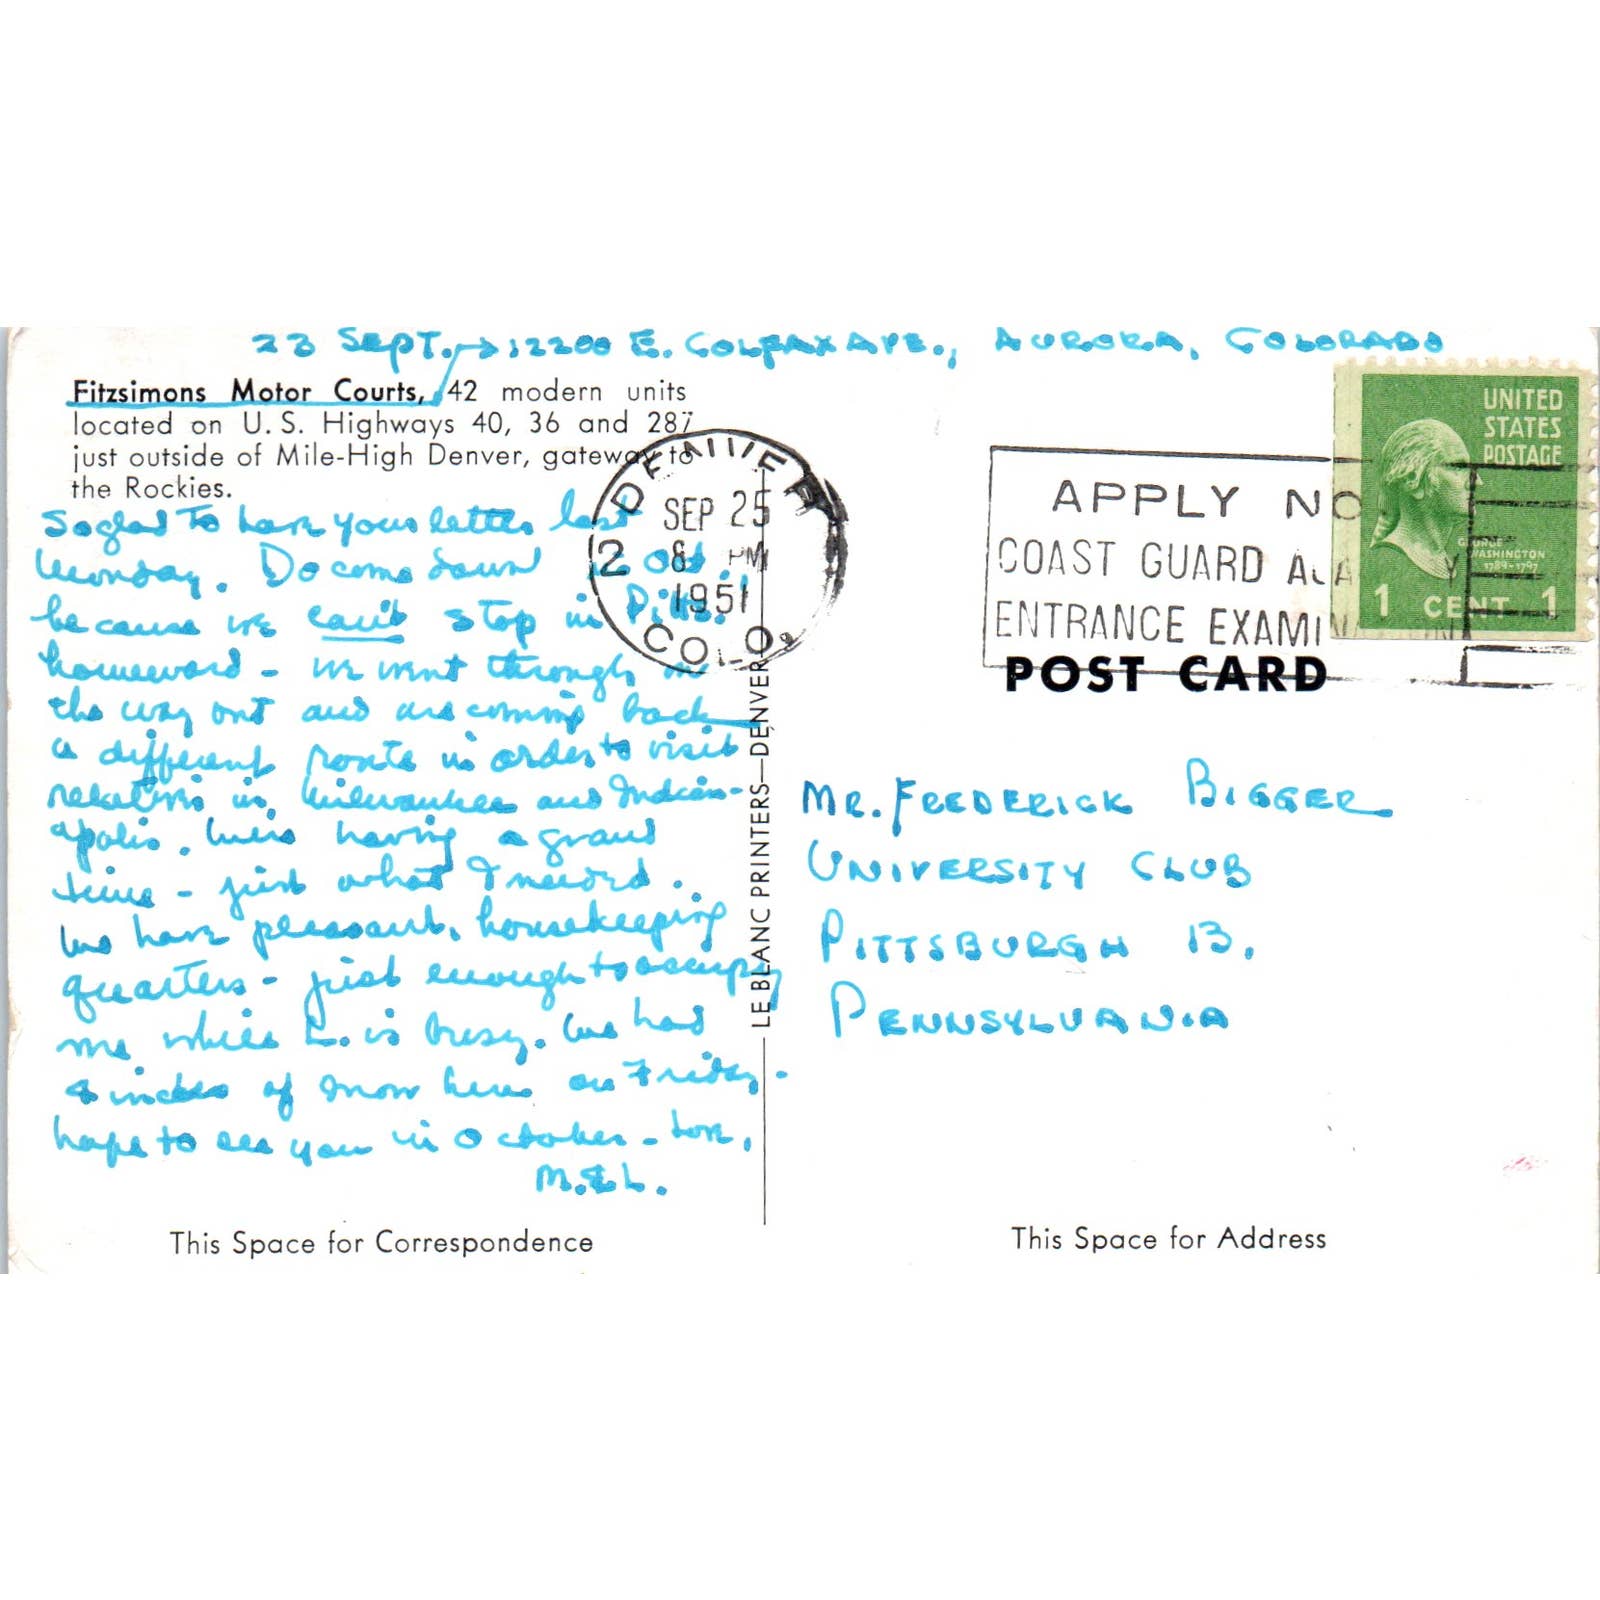 23 SEPT. → 12200 E. COLFAX AVE., AURORA, COLORADO
Fitzsimons Motor Courts, 42 modern units
located on U. S. Highways 40, 36 and 287
just outside of Mile-High Denver, gateway to
the Rockies.
So glad to have your letter last
Monday. Do come down in Oct.
because we can't stop in Pitts.
homeward - we went through on
the way out and are coming back
a different route in order to visit
relatives in Milwaukee and Indian-
apolis. We're having a grand
time - just what I needed.
We have pleasant, housekeeping
quarters - just enough to occupy
me while L. is busy. We had
4 inches of snow here on Friday.-
hope to see you in October - Love,
M. & L.
This Space for Correspondence
DENVER
2
SEP 25
8 PM
1951
COLO.
LE BLANC PRINTERS—DENVER
APPLY NO
COAST GUARD ACA Y
ENTRANCE EXAMIN ION
UNITED
STATES
POSTAGE
GEORGE
WASHINGTON
1789-1797
1 CENT 1
POST CARD
MR. FREDERICK BIGGER
UNIVERSITY CLUB
PITTSBURGH 13,
PENNSYLVANIA
This Space for Address